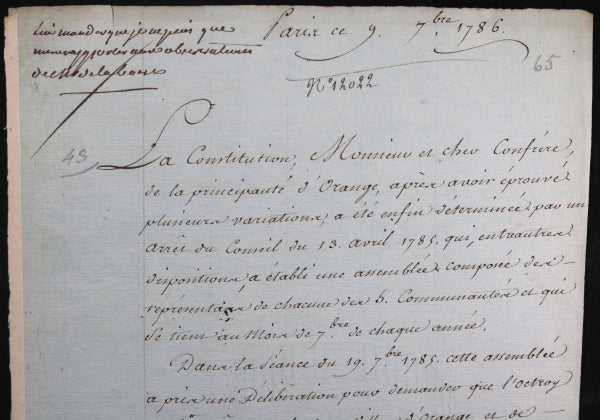 Paris ce 9. 7.bre 1786.
N° 12022
65
lui mander que je ne puis que
m'en rapporter aux observations
de
43
La Constitution, Monsieur et cher Confrère,
de la principauté d'Orange, après avoir éprouvé
plusieurs variations, a été enfin déterminée par un
arrêt du Conseil du 13. avril 1785. qui, entreautres
dispositions, a établi une assemblée composée des
représentans de chacune des 5. Communautés et qui
se tient au Mois de 7.bre de chaque année.
Dans la Séance du 19. 7.bre 1785. cette assemblée
a pris une Délibération pour demander que l'octroy
d'Orange et de